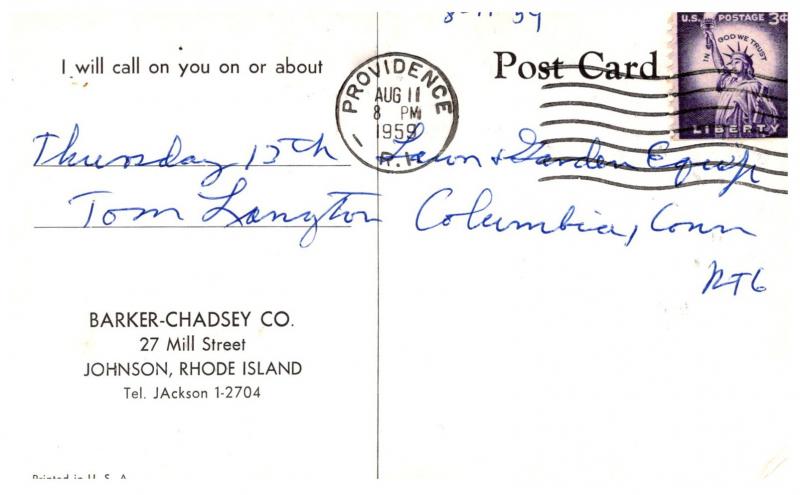 8-11-59
I will call on you on or about
Thursday 13th
Tom Langton
BARKER-CHADSEY CO.
27 Mill Street
JOHNSON, RHODE ISLAND
Tel. JAckson 1-2704
Printed in U. S. A.
Post Card
U.S. POSTAGE 3¢
IN GOD WE TRUST
LIBERTY
PROVIDENCE
AUG 11
8 PM
1959
R.I.
Lawn & Garden Equip
Columbia, Conn
RT6